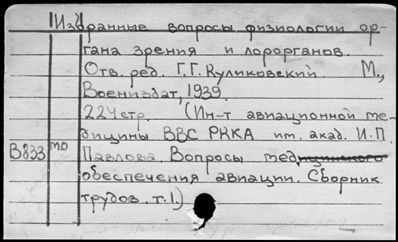 Избранные вопросы физиологии ор-
гана зрения и лорорганов.
Отв. ред. Г.Г. Куликовский. М.,
Воениздат, 1939.
224 стр. (Ин-т авиационной ме-
дицины ВВС РККА им. акад. И.П.
В833 то Павлова. Вопросы медицинского
обеспечения авиации. Сборник
трудов. т.1.)